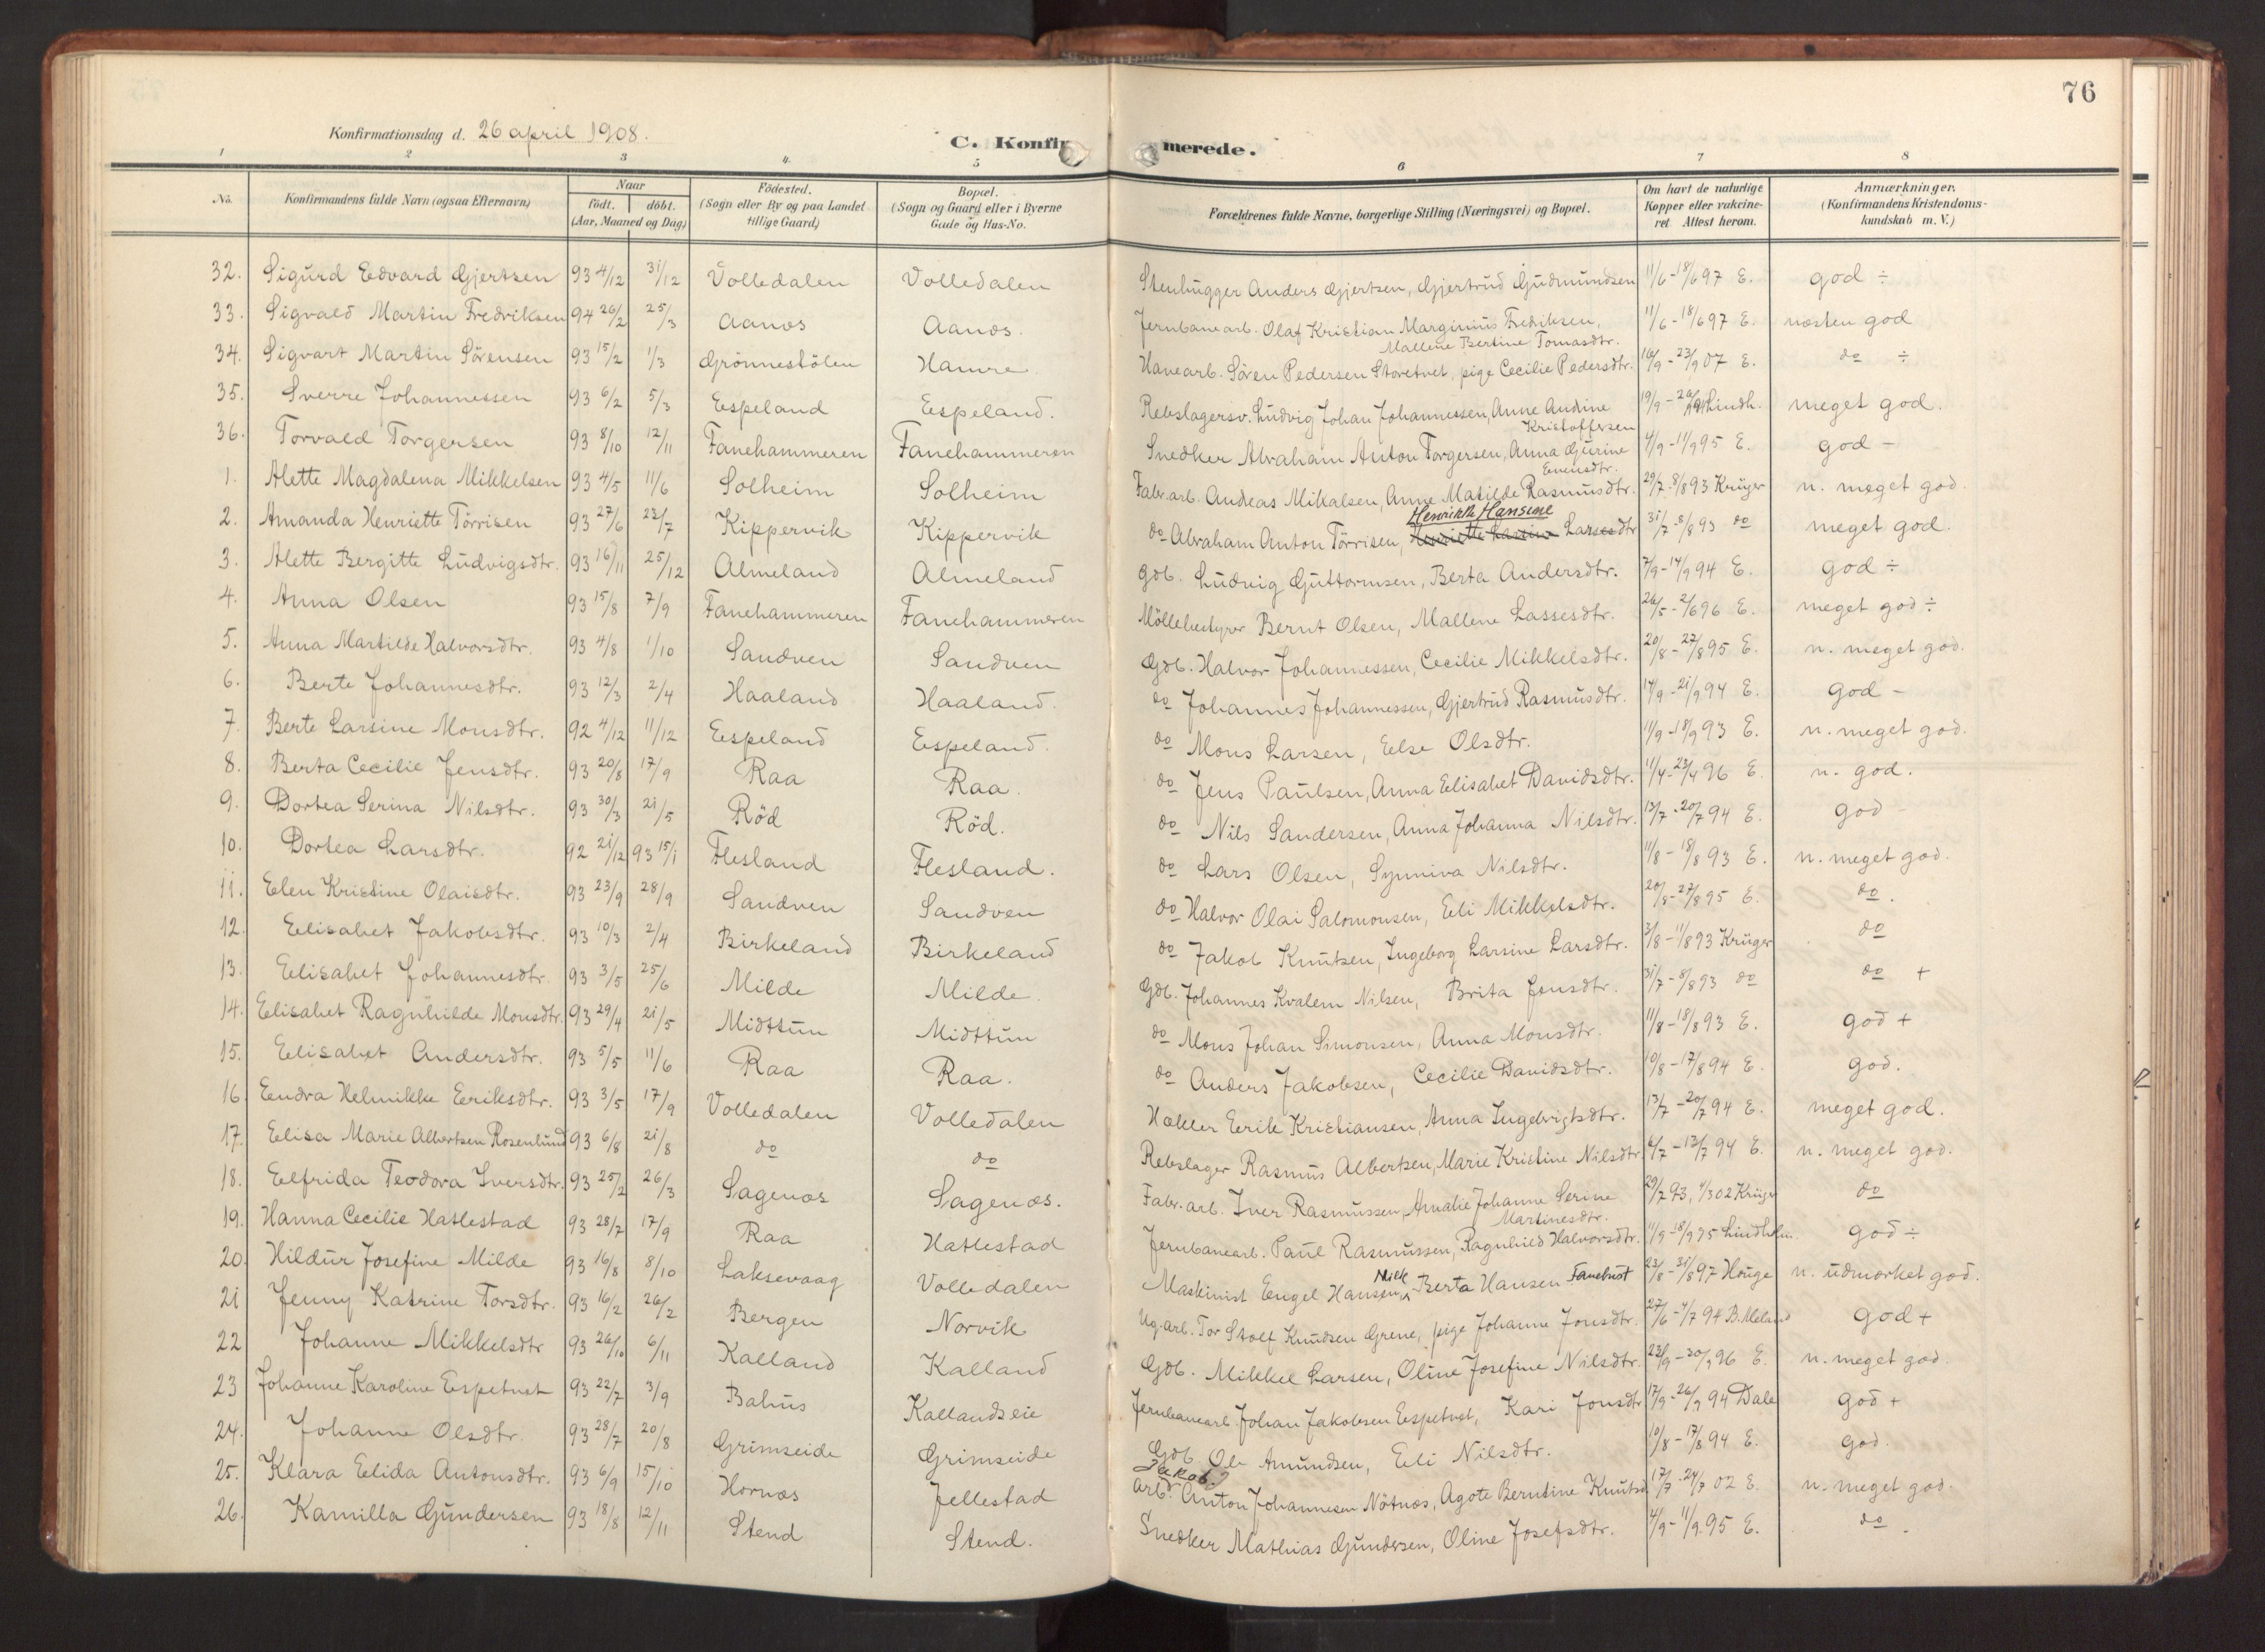 76
Konfirmationsdag d. 26 april 1908.
C. Konfirmerede.
1 2 3 4. 5 6 7 8
No. Konfirmandens fulde Navn (ogsaa Efternavn) Naar født. døbt. (Aar, Maaned og Dag) Fødested. (Sogn eller By og paa Landet tillige Gaard) Bopæl. (Sogn og Gaard eller i Byerne Gade og Hus-No. Forældrenes fulde Navne, borgerlige Stilling (Næringsvei) og Bopæl. Om havt de naturlige Kopper eller vakcineret. Attest herom. Anmærkninger. (Konfirmandens Kristendomskundskab m. V.)
32. Sigurd Edvard Gjertsen 93 4/12 31/12 Volledalen Volledalen Stenhugger Anders Gjertsen, Gjertrud Gudmundsen 11/6-18/6 97 E. god ÷
33. Sigvald Martin Fredriksen 94 26/2 25/3 Aanæs Aanæs. Jernbanearb. Olaf Kristian Marginius Fredriksen, Mallene Bertine Tomasdtr. 11/6-18/6 97 E. næsten god
34. Sigvart Martin Sörensen 93 15/2 1/3 Grönnestölen Hamre Havearb. Sören Pedersen Storetvet, pige Cecilie Pedersdtr. 16/9-23/9 07 E. do ÷
35. Sverre Johannessen 93 6/2 5/3 Espeland Espeland. Rebslagersv. Ludvig Johan Johannessen, Anne Andine Kristoffersen 19/9-26/9 Lindh. meget god.
36. Torvald Torgersen 93 8/10 12/11 Fanehammeren Fanehammeren Snedker Abraham Anton Torgersen, Anna Gurine Evensdtr. 4/9-11/9 95 E. god -
1. Alette Magdalena Mikkelsen 93 4/5 11/6 Solheim Solheim Fabr.arb. Andreas Mikalsen, Anne Matilde Rasmusdtr. 29/7-8/8 93 Krüger n. meget god.
2. Amanda Henriette Törrisen 93 27/6 23/7 Kippervik Kippervik do Abraham Anton Törrisen, Henrikke Hansine Larsesdtr 31/7-8/8 93 do meget god.
3. Alette Bergitte Ludvigsdtr. 93 16/11 25/12 Almeland Almeland Gdb. Ludvig Guttormsen, Berta Andersdtr. 7/9-14/9 94 E. god ÷
4. Anna Olsen 93 15/8 7/9 Fanehammeren Fanehammeren Möllebestyrer Bernt Olsen, Mallene Lassesdtr. 26/5-2/6 96 E. meget god ÷
5. Anna Martilde Halvorsdtr. 93 4/8 1/10 Sandven Sandven Gdb. Halvor Johannessen, Cecilie Mikkelsdtr. 20/8-27/8 95 E. n. meget god.
6. Berte Johannesdtr. 93 12/3 2/4 Haaland Haaland. do Johannes Johannessen, Gjertrud Rasmusdtr. 14/9-21/9 94 E. god -
7. Berte Larsine Monsdtr. 92 4/12 11/12 Espeland Espeland. do Mons Larsen, Else Olsdtr. 11/9-18/9 93 E. n. meget god.
8. Berta Cecilie Jensdtr. 93 20/8 17/9 Raa Raa. do Jens Paulsen, Anna Elisabet Davidsdtr. 11/4-23/4 96 E n. god.
9. Dortea Serina Nilsdtr. 93 30/3 21/5 Röd Röd. do Nils Sandersen, Anna Johanna Nilsdtr. 13/7-20/7 94 E. god -
10. Dortea Larsdtr. 92 21/12 93 15/1 Flesland Flesland. do Lars Olsen, Synniva Nilsdtr. 11/8-18/8 93 E. n. meget god.
11. Elen Kristine Olaisdtr. 93 23/9 28/9 Sandven Sandven do Halvor Olai Salomonsen, Eli Mikkelsdtr. 20/8-27/8 95 E. do.
12. Elisabet Jakobsdtr. 93 10/3 2/4 Birkeland Birkeland do Jakob Knutsen, Ingeborg Larsine Larsdtr. 3/8-11/8 93 Krüger do
13. Elisabet Johannesdtr. 93 3/5 25/6 Milde Milde. Gdb. Johannes Kvalem Nilsen, Brita Jensdtr. 31/7-8/8 93 do do +
14. Elisabet Ragnhilde Monsdtr. 93 29/4 21/5 Midttun Midttun do Mons Johan Simonsen, Anna Monsdtr. 11/8-18/8 93 E. god +
15. Elisabet Andersdtr. 93 5/5 11/6 Raa Raa. do Anders Jakobsen, Cecilie Davidsdtr. 10/8-17/8 94 E. god.
16. Endra Helmikke Eriksdtr. 93 3/5 17/9 Volledalen Volledalen Hekler Erik Kristiansen, Anna Ingebrigtsdtr. 13/7-20/7 94 E. meget god.
17. Elisa Marie Albertsen Rosenlund 93 6/8 21/8 do do Rebslager Rasmus Albertsen, Marie Kristine Nilsdtr 6/7-13/7 94 E. n. meget god.
18. Elfrida Teodora Iversdtr. 93 25/2 26/3 Sagenæs Sagenæs. Fabr.arb. Iver Rasmussen, Amalie Johanne Serine Martinesdtr. 29/7 93, 4/3 02 Krüger do
19. Hanna Cecilie Hatlestad 93 28/7 17/9 Raa Hatlestad Jernbanearb. Paul Rasmussen, Ragnhild Halvorsdtr. 11/9-18/9 95 Lindholm. god ÷
20. Hildur Josefine Milde 93 16/8 8/10 Laksevaag Volledalen Maskinist Engel Hansen Milde, Berta Hansen Fanebust 23/8-31/8 97 Houge n. udmærket god.
21 Jenny Katrine Torsdtr. 93 16/2 26/2 Bergen Norvik Ug.arb. Tor Stolf Knudsen Grene, pige Johanne Jonsdtr. 27/6-4/7 94 B. Meland god +
22 Johanne Mikkelsdtr 93 26/10 6/11 Kalland Kalland Gdb. Mikkel Larsen, Oline Josefine Nilsdtr. 23/9-30/9 96 E. n. meget god.
23 Johanne Karoline Espetvet 93 22/7 3/9 Bahus Kallandseie Jernbanearb. Johan Jakobsen Espetvet, Kari Jonsdtr 17/9-26/9 94 Dale god +
24. Johanne Olsdtr. 93 28/7 20/8 Grimseide Grimseide Gdb Ole Amundsen, Eli Nilsdtr. 10/8-17/8 94 E. god.
25. Klara Elida Antonsdtr. 93 6/9 15/10 Hornæs Jellestad Arbd. Jakob? Anton Johannesen Nötnæs, Agote Berntine Knutsd. 17/7-24/7 02 E. n. meget god.
26. Kamilla Gundersen 93 18/8 12/11 Stend Stend. Snedker Mathias Gundersen, Oline Josefsdtr. 4/9-11/9 95 E. do.